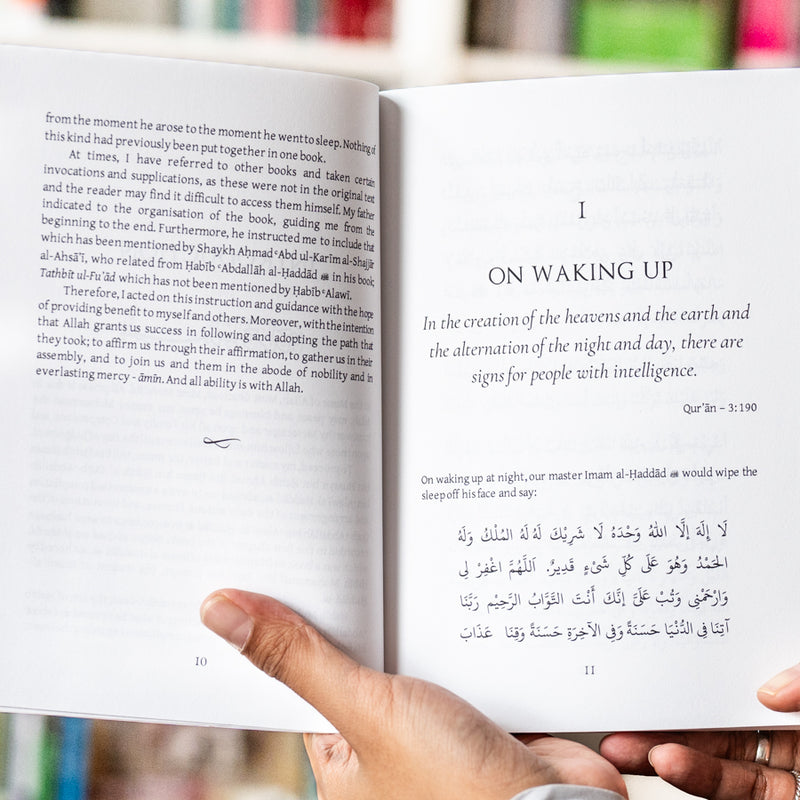 from the moment he arose to the moment he went to sleep. Nothing of
this kind had previously been put together in one book.
At times, I have referred to other books and taken certain
invocations and supplications, as these were not in the original text
and the reader may find it difficult to access them himself. My father
indicated to the organisation of the book, guiding me from the
beginning to the end. Furthermore, he instructed me to include that
which has been mentioned by Shaykh Aḥmad ʿAbd ul-Karīm al-Shajjār
al-Ahsā'ī, who related from Ḥabīb ʿAbdallāh al-Ḥaddād in his book,
Tathbīt ul-Fu'ād which has not been mentioned by Ḥabīb ʿAlawī.
Therefore, I acted on this instruction and guidance with the hope
of providing benefit to myself and others. Moreover, with the intention
that Allah grants us success in following and adopting the path that
they took; to affirm us through their affirmation, to gather us in their
assembly, and to join us and them in the abode of nobility and in
everlasting mercy - āmīn. And all ability is with Allah.
10
I
ON WAKING UP
In the creation of the heavens and the earth and
the alternation of the night and day, there are
signs for people with intelligence.
Qur'ān – 3:190
On waking up at night, our master Imam al-Ḥaddād would wipe the
sleep off his face and say:
لَا إِلَهَ إِلَّا اللهُ وَحْدَهُ لَا شَرِيْكَ لَهُ لَهُ المُلْكُ وَلَهُ
الحَمْدُ وَهُوَ عَلَى كُلِّ شَيْءٍ قَدِيرٌ. اَللَّهُمَّ اغْفِرْ لِي
وَارْحَمْنِي وَتُبْ عَلَيَّ إِنَّكَ أَنْتَ التَّوَّابُ الرَّحِيْم رَبَّنَا
آتِنَا فِي الدُّنْيَا حَسَنَةً وَفِي الآخِرَةِ حَسَنَةً وَقِنَا عَذَابَ
11